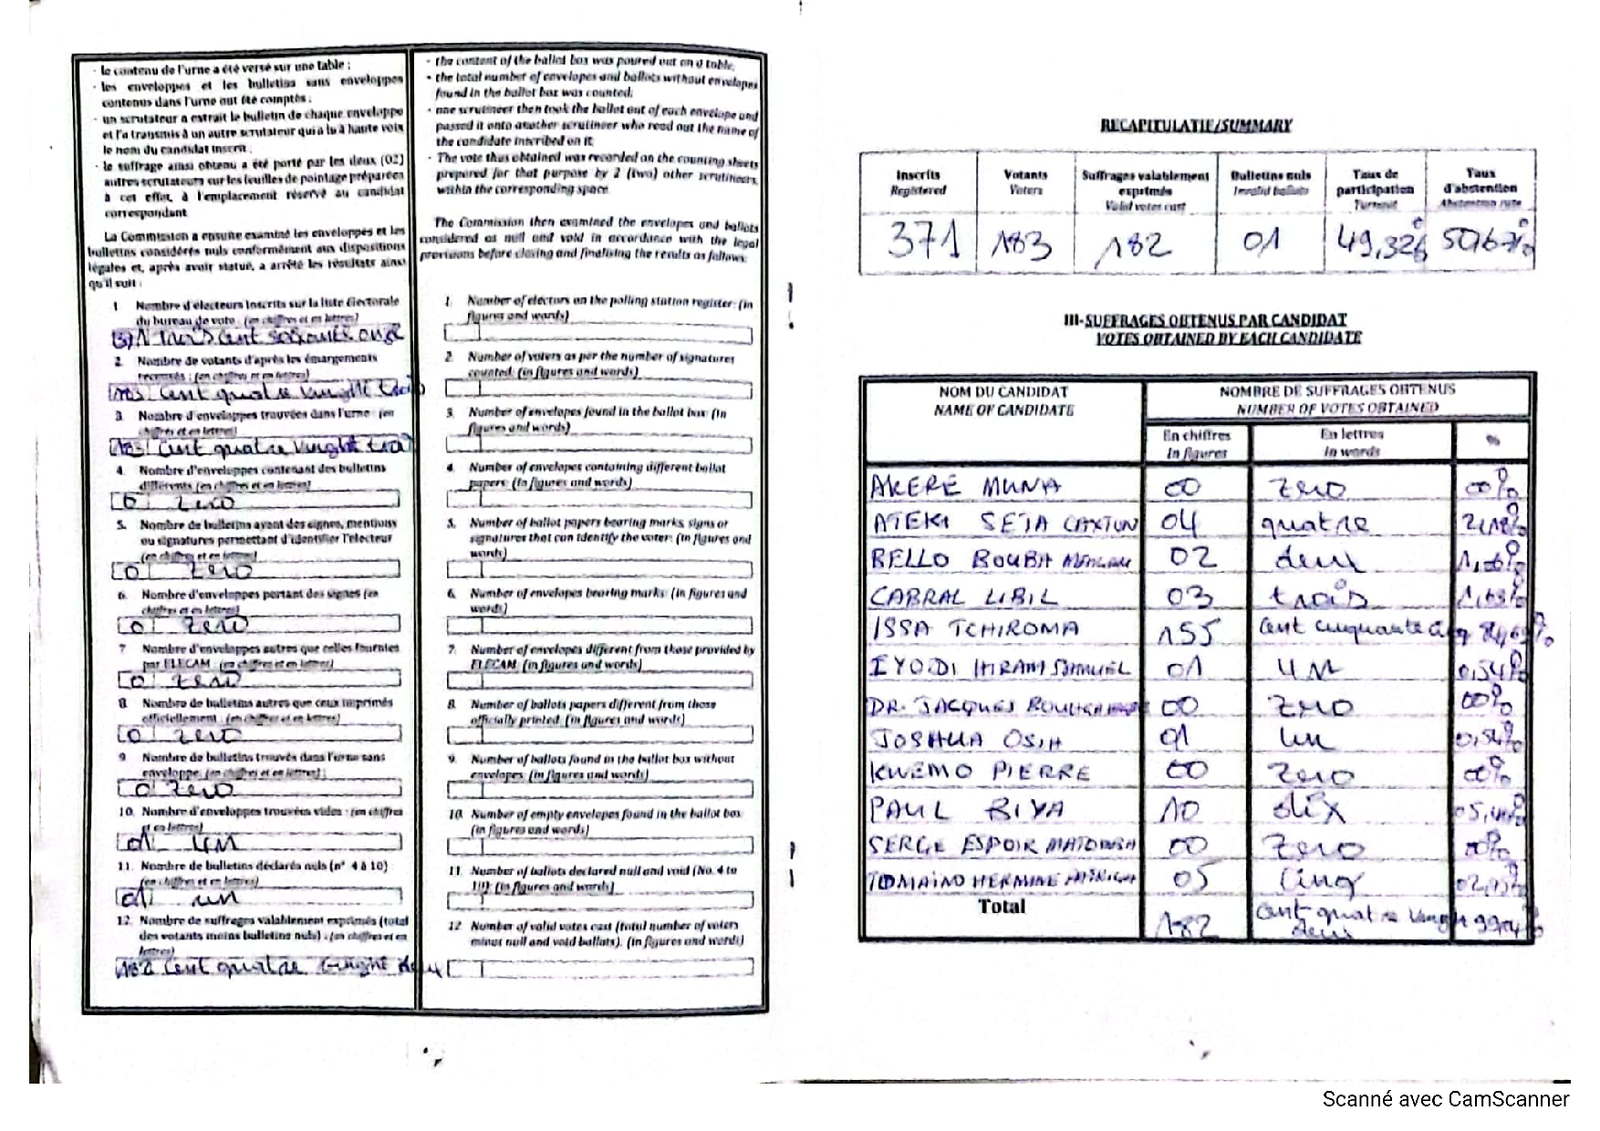 - le contenu de l'urne a été versé sur une table ;
- les enveloppes et les bulletins sans enveloppes
contenus dans l'urne ont été comptés ;
- un scrutateur a extrait le bulletin de chaque enveloppe
et l'a transmis à un autre scrutateur qui a lu à haute voix
le nom du candidat inscrit ;
- le suffrage ainsi obtenu a été porté par les deux (02)
autres scrutateurs sur les feuilles de pointage préparées
à cet effet, à l'emplacement réservé au candidat
correspondant
La Commission a ensuite examiné les enveloppes et les
bulletins considérés nuls conformément aux dispositions
légales et, après avoir statué, a arrêté les résultats ainsi
qu'il suit :
1 Nombre d'électeurs inscrits sur la liste électorale
du bureau de vote : (en chiffres et en lettres)
trois cent soixante onze
2. Nombre de votants d'après les émargements
recensés : (en chiffres et en lettres)
183 cent quatre vinght trois
3. Nombre d'enveloppes trouvées dans l'urne : (en
chiffres et en lettres)
183 cent quatre vinght trois
4. Nombre d'enveloppes contenant des bulletins
différents (en chiffres et en lettres)
0 zero
5. Nombre de bulletins ayant des signes, mentions
ou signatures permettant d'identifier l'électeur
(en chiffres et en lettres)
0 zero
6. Nombre d'enveloppes portant des signes (en
chiffres et en lettres)
0 zero
7 Nombre d'enveloppes autres que celles fournies
par ELECAM : (en chiffres et en lettres)
0 zero
8 Nombre de bulletins autres que ceux imprimés
officiellement : (en chiffres et en lettres)
0 zero
9 Nombre de bulletins trouvés dans l'urne sans
enveloppe (en chiffres et en lettres) :
0 zero
10. Nombre d'enveloppes trouvées vides : (en chiffres
et en lettres)
01 un
11. Nombre de bulletins déclarés nuls (n° 4 à 10)
(en chiffres et en lettres)
01 un
12. Nombre de suffrages valablement exprimés (total
des votants moins bulletins nuls) : (en chiffres et en
lettres)
182 cent quatre vinght deux
- the content of the ballot box was poured out on a table;
- the total number of envelopes and ballots without envelopes
found in the ballot box was counted;
- one scrutineer then took the ballot out of each envelope and
passed it onto another scrutineer who read out the name of
the candidate inscribed on it;
- The vote thus obtained was recorded on the counting sheets
prepared for that purpose by 2 (two) other scrutineers,
within the corresponding space.
The Commission then examined the envelopes and ballots
considered as null and void in accordance with the legal
provisions before closing and finalising the results as follows:
1. Number of electors on the polling station register: (in
figures and words)
2. Number of voters as per the number of signatures
counted: (in figures and words)
3. Number of envelopes found in the ballot box: (in
figures and words)
4. Number of envelopes containing different ballot
papers: (in figures and words)
5. Number of ballot papers bearing marks, signs or
signatures that can identify the voter: (in figures and
words)
6. Number of envelopes bearing marks: (in figures and
words)
7. Number of envelopes different from those provided by
ELECAM: (in figures and words)
8. Number of ballots papers different from those
officially printed: (in figures and words)
9. Number of ballots found in the ballot box without
envelopes: (in figures and words)
10. Number of empty envelopes found in the ballot box:
(in figures and words)
11 Number of ballots declared null and void (No. 4 to
10): (in figures and words)
12 Number of valid votes cast (total number of voters
minus null and void ballots). (in figures and words)
RECAPITULATIF/SUMMARY
Inscrits Votants Suffrages valablement exprimés Bulletins nuls Taux de participation Taux d'abstention
Registered Voters Valid votes cast Invalid ballots Turnout Abstention rate
371 183 182 01 49,32% 50,67%
III-SUFFRAGES OBTENUS PAR CANDIDAT
VOTES OBTAINED BY EACH CANDIDATE
NOM DU CANDIDAT NOMBRE DE SUFFRAGES OBTENUS
NAME OF CANDIDATE NUMBER OF VOTES OBTAINED
En chiffres En lettres %
In figures In words
AKERE MUNA 00 zero 00%
ATEKI SETA CAXTON 04 quatre
BELLO BOUBA 02 deux
CABRAL LIBII 03 trois
ISSA TCHIROMA 155 cent cinquante cinq
IYODI HIRAM SAMUEL 01 un 0,54%
DR. JACQUES 00 zero 00%
JOSHUA OSIH 01 un 0,54%
KWEMO PIERRE 00 zero 00%
PAUL BIYA 10 dix
SERGE ESPOIR MATOMBA 00 zero 00%
TOMAINO HERMINE 05 cinq
Total 182 cent quatre vinght deux
Scanné avec CamScanner